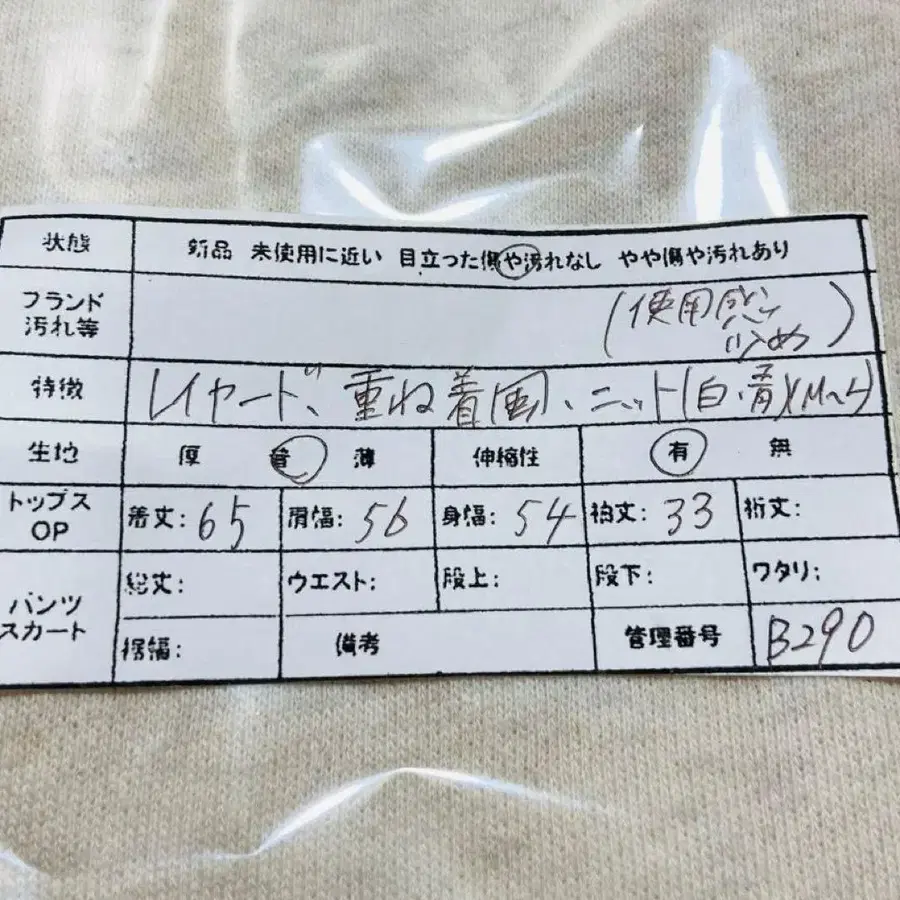 状態 新品 未使用に近い 目立った傷や汚れなし やや傷や汚れあり
フランド 汚れ等 (使用感 少め)
特徴 レイヤード、重ね着風、ニット(白・青)(M~L)
生地 厚 普 薄 伸縮性 有 無
トップス OP 着丈: 65 肩幅: 56 身幅: 54 袖丈: 33 裄丈:
パンツ スカート 総丈: ウエスト: 股上: 股下: ワタリ:
裾幅: 備考 管理番号 B290